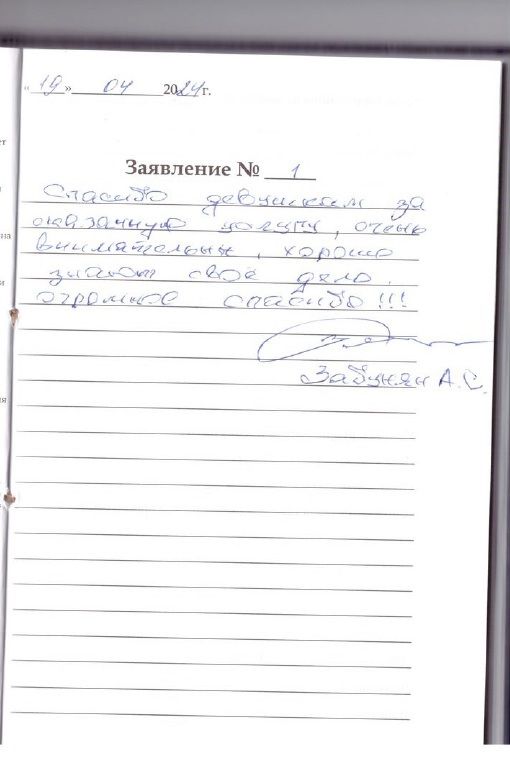 «19» 04 2024г.
Заявление № 1
Спасибо девушкам за
оказанную услугу, очень
внимательны, хорошо
знают свое дело.
огромное спасибо!!!
Забунян А.С.